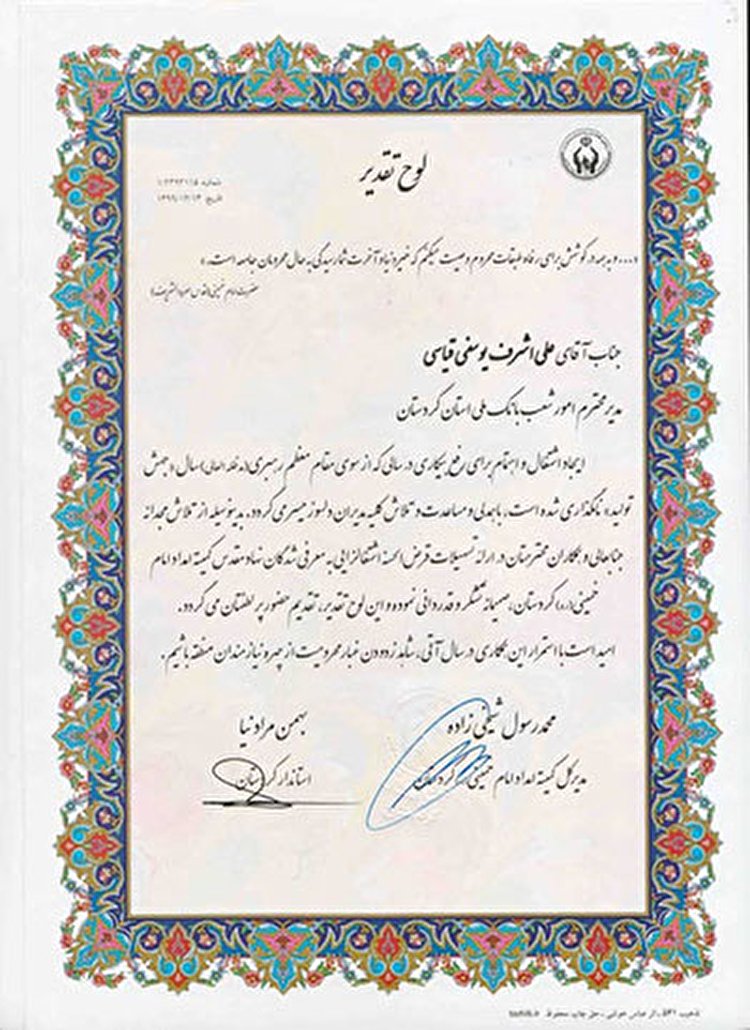 لوح تقدیر
شماره:
تاریخ:
«... و به همه در کوشش برای رفاه طبقات محروم وصیت میکنم که خیر دنیا و آخرت شما رسیدگی به حال محرومان جامعه است.»
حضرت امام خمینی (قدس سره الشریف)
جناب آقای علی اشرف یوسفی قیاسی
مدیر محترم امور شعب بانک ملی استان کردستان
ایجاد اشتغال و اهتمام برای رفع بیکاری در سالی که از سوی مقام معظم رهبری (مدظله العالی) سال «جهش
تولید» نامگذاری شده است، با همدلی و مساعدت و تلاش کلیه مدیران دلسوز میسر می گردد. بدینوسیله از تلاش مجدانه
جنابعالی و همکاران محترمتان در ارائه تسهیلات قرض الحسنه اشتغالزایی به معرفی شدگان نهاد مقدس کمیته امداد امام
خمینی (ره) کردستان، صمیمانه تشکر و قدردانی نموده و این لوح تقدیر، تقدیم حضور پر لطفتان می گردد.
امید است با استمرار این همکاری در سال آتی، شاهد زدودن غبار محرومیت از چهره نیازمندان منطقه باشیم.
محمدرسول شیخی زاده
مدیرکل کمیته امداد امام خمینی (ره) کردستان
بهمن مرادنیا
استاندار کردستان
تذهیب ۵۳۱ - اثر عباس - حق چاپ محفوظ